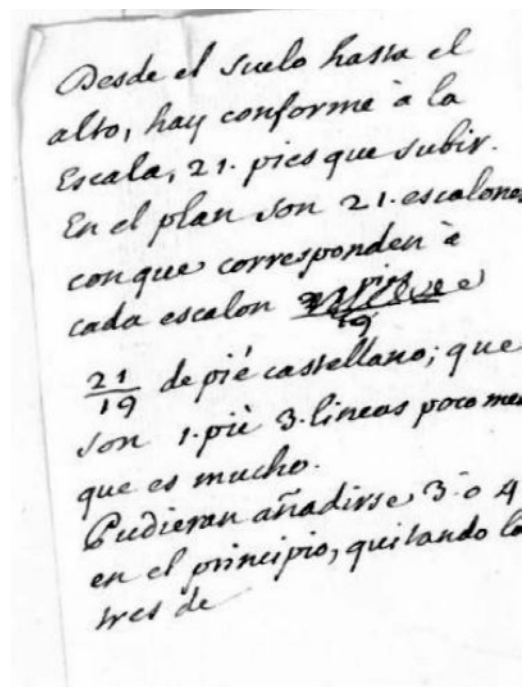 Desde el suelo hasta el
alto, hay conforme à la
Escala, 21. pies que subir.
En el plan son 21. escalones
conque corresponden à
cada escalon
19
21/19 de pié castellano; que
son 1. piè 3. lineas poco me
que es mucho.
Pudieran añadirse 3. o 4
en el principio, quitando lo
tres de